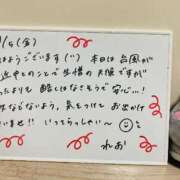 /4(金)
はようございます(ˊˋ) 本日は 台風が
近中とのことで 生憎の 天候ですが
ったよりも 酷くはなさそうで 安心…!
などないよう、気をつけて お出かけ
いませ!! いってらっしゃい〜 ☺
れお!